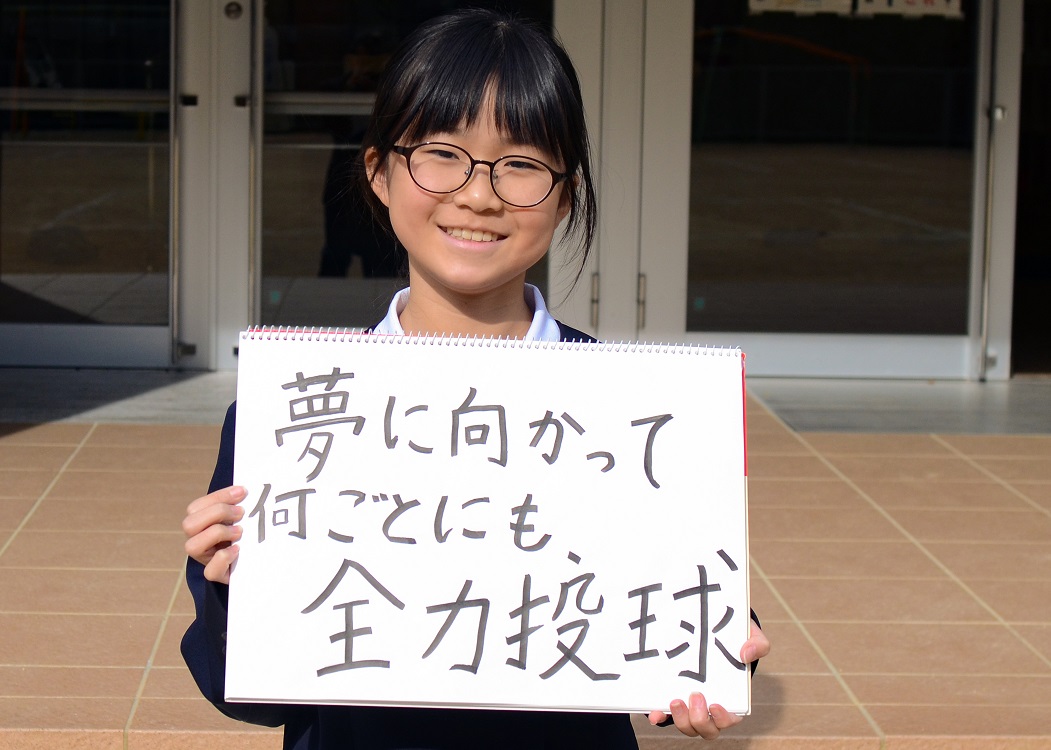 夢に向かって
何ごとにも、
全力投球